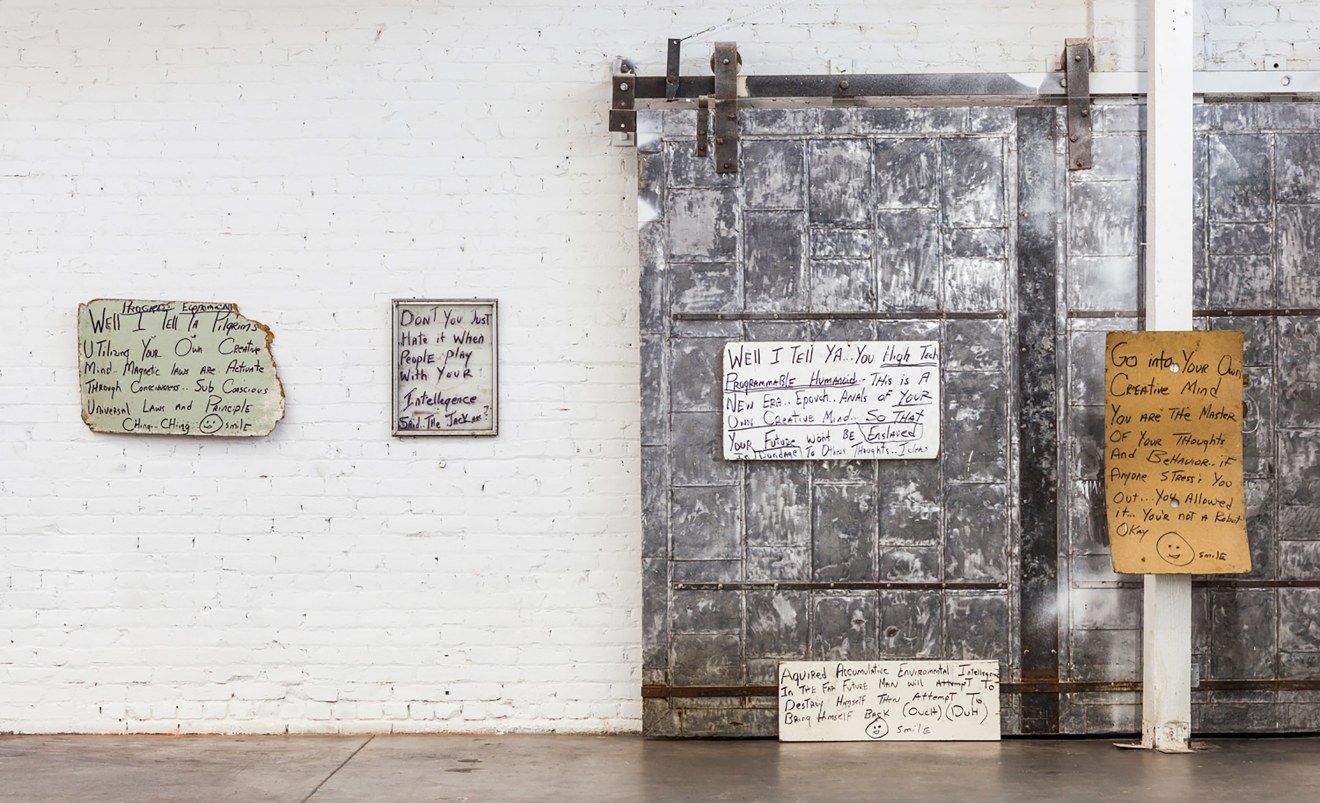 Progress Economics
Well I Tell Ya Pilgrims
Utilizing Your Own Creative
Mind. Magnetic laws are Activate
Through Conciousness.. Sub Conscious
Universal Laws and Principle
Ching.. Ching smile
Don't You Just
Hate it When
People play
With Your
Intellegence
Said The Jackass?
Well I Tell Ya.. You High Tech
Programmable Humanoid.. This is A
New Era.. Epouch.. Anals of Your
Own Creative Mind.. So That
Your Future Won't Be Enslaved
In Bundage To Others Thoughts..
Aquired Accumulative Enviromental Intellegence
In The Far Future Man will Attempt To
Destroy Himself Then Attempt To
Bring Himself Back (Ouch) (Duh)
smile
Go into Your Own
Creative Mind
You are The Master
Of Your Thoughts
And Behavior.. if
Anyone Stress's You
Out... You Allowed
it.. Your not A Robot
Okay
smile